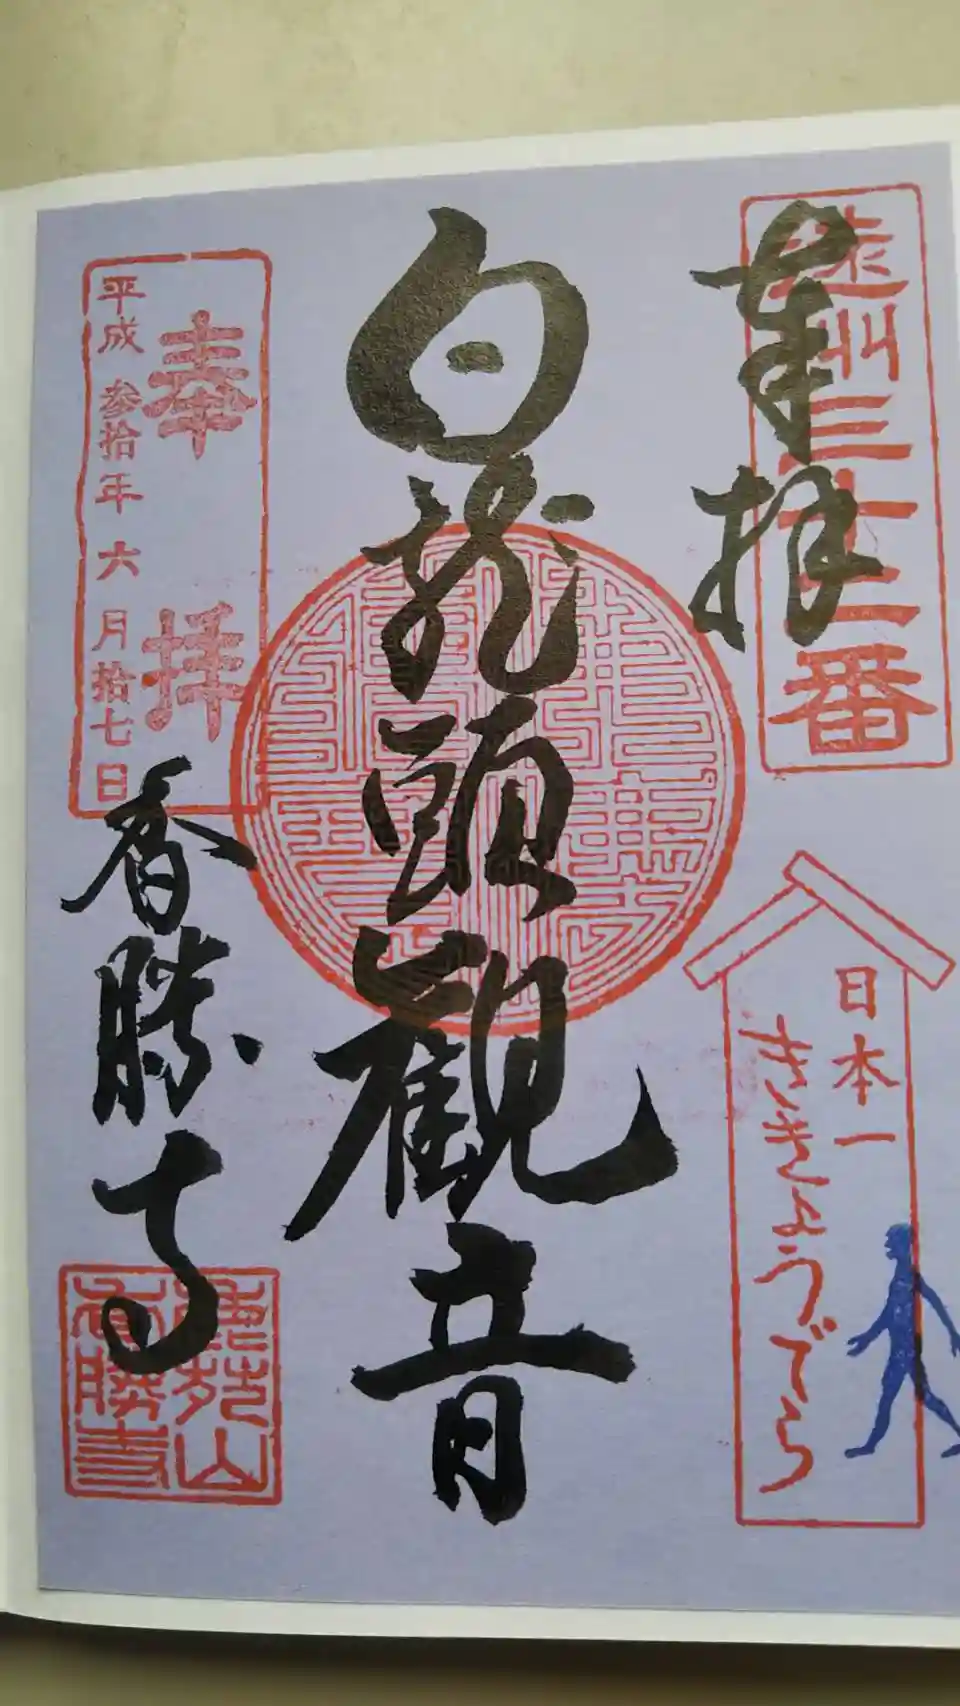 奉拝
遠州三十三番
日本一
ききょうでら
白龍頭観音
奉拝
平成参拾年六月拾七日
香勝寺
鹿苑山
香勝寺